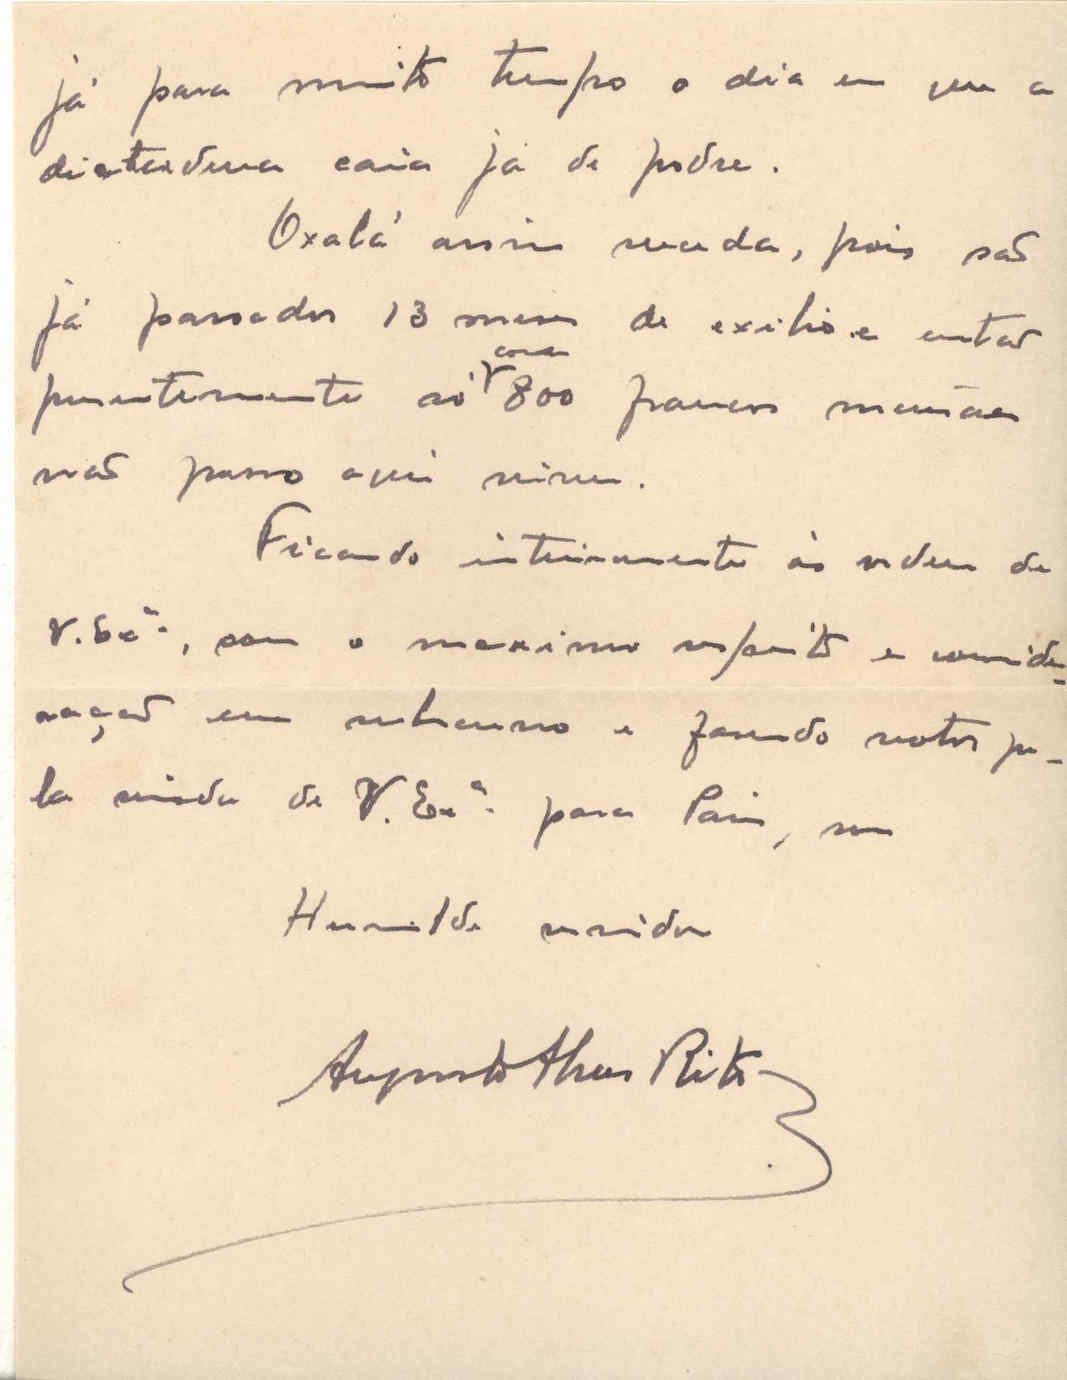 já para muito tempo o dia em que a
dictadura caia já de podre.
Oxalá assim suceda, pois são
já passados 13 meses de exilio e entao
presentemente só com 800 francos mensaes
não posso aqui viver.
Ficando inteiramente ás ordens de
V. Exª., com o maximo respeito e conside-
ração me subscrevo e fazendo votos pe-
la vinda de V. Exª. para Paris, sou
Humilde servidor
Augusto Alves Rito